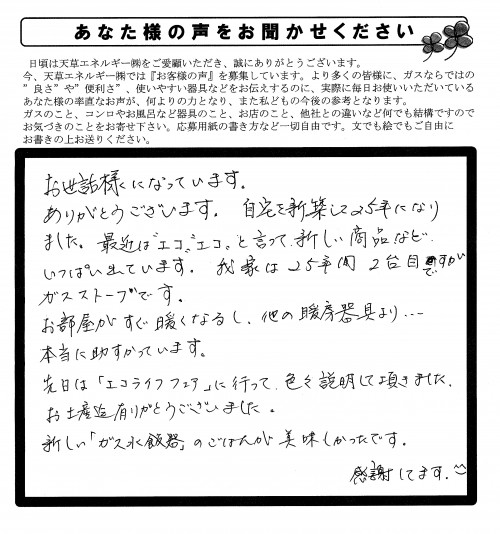 あなた様の声をお聞かせください
日頃は天草エネルギー㈱をご愛顧いただき、誠にありがとうございます。
今、天草エネルギー㈱では『お客様の声』を募集しています。より多くの皆様に、ガスならではの
”良さ”や”便利さ”、使いやすい器具などをお伝えするのに、実際に毎日お使いいただいている
あなた様の率直なお声が、何よりの力となり、また私どもの今後の参考となります。
ガスのこと、コンロやお風呂など器具のこと、お店のこと、他社との違いなど何でも結構ですので
お気づきのことをお寄せ下さい。応募用紙の書き方など一切自由です。文でも絵でもご自由に
お書きの上お送りください。
お世話様になっています。
ありがとうございます。自宅を新築して25年になり
ました。最近は"エコ、エコ"と言って、新しい商品など
いっぱい出ています。我家は25年間2台目ですが
ガスストーブです。
お部屋がすぐ暖くなるし、他の暖房器具より…
本当に助すかっています。
先日は「エコライフフェア」に行って、色々説明して頂きました。
お土産迄有りがとうございました。
新しい「ガス炊飯器」のごはんが美味しかったです。
感謝してます。